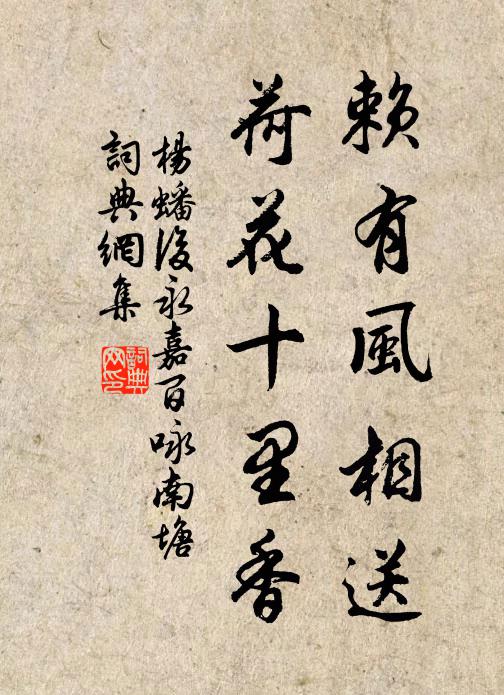 賴有風相送
荷花十里香
楊蟠後永嘉百咏南塘
詞典網集
詞典網印